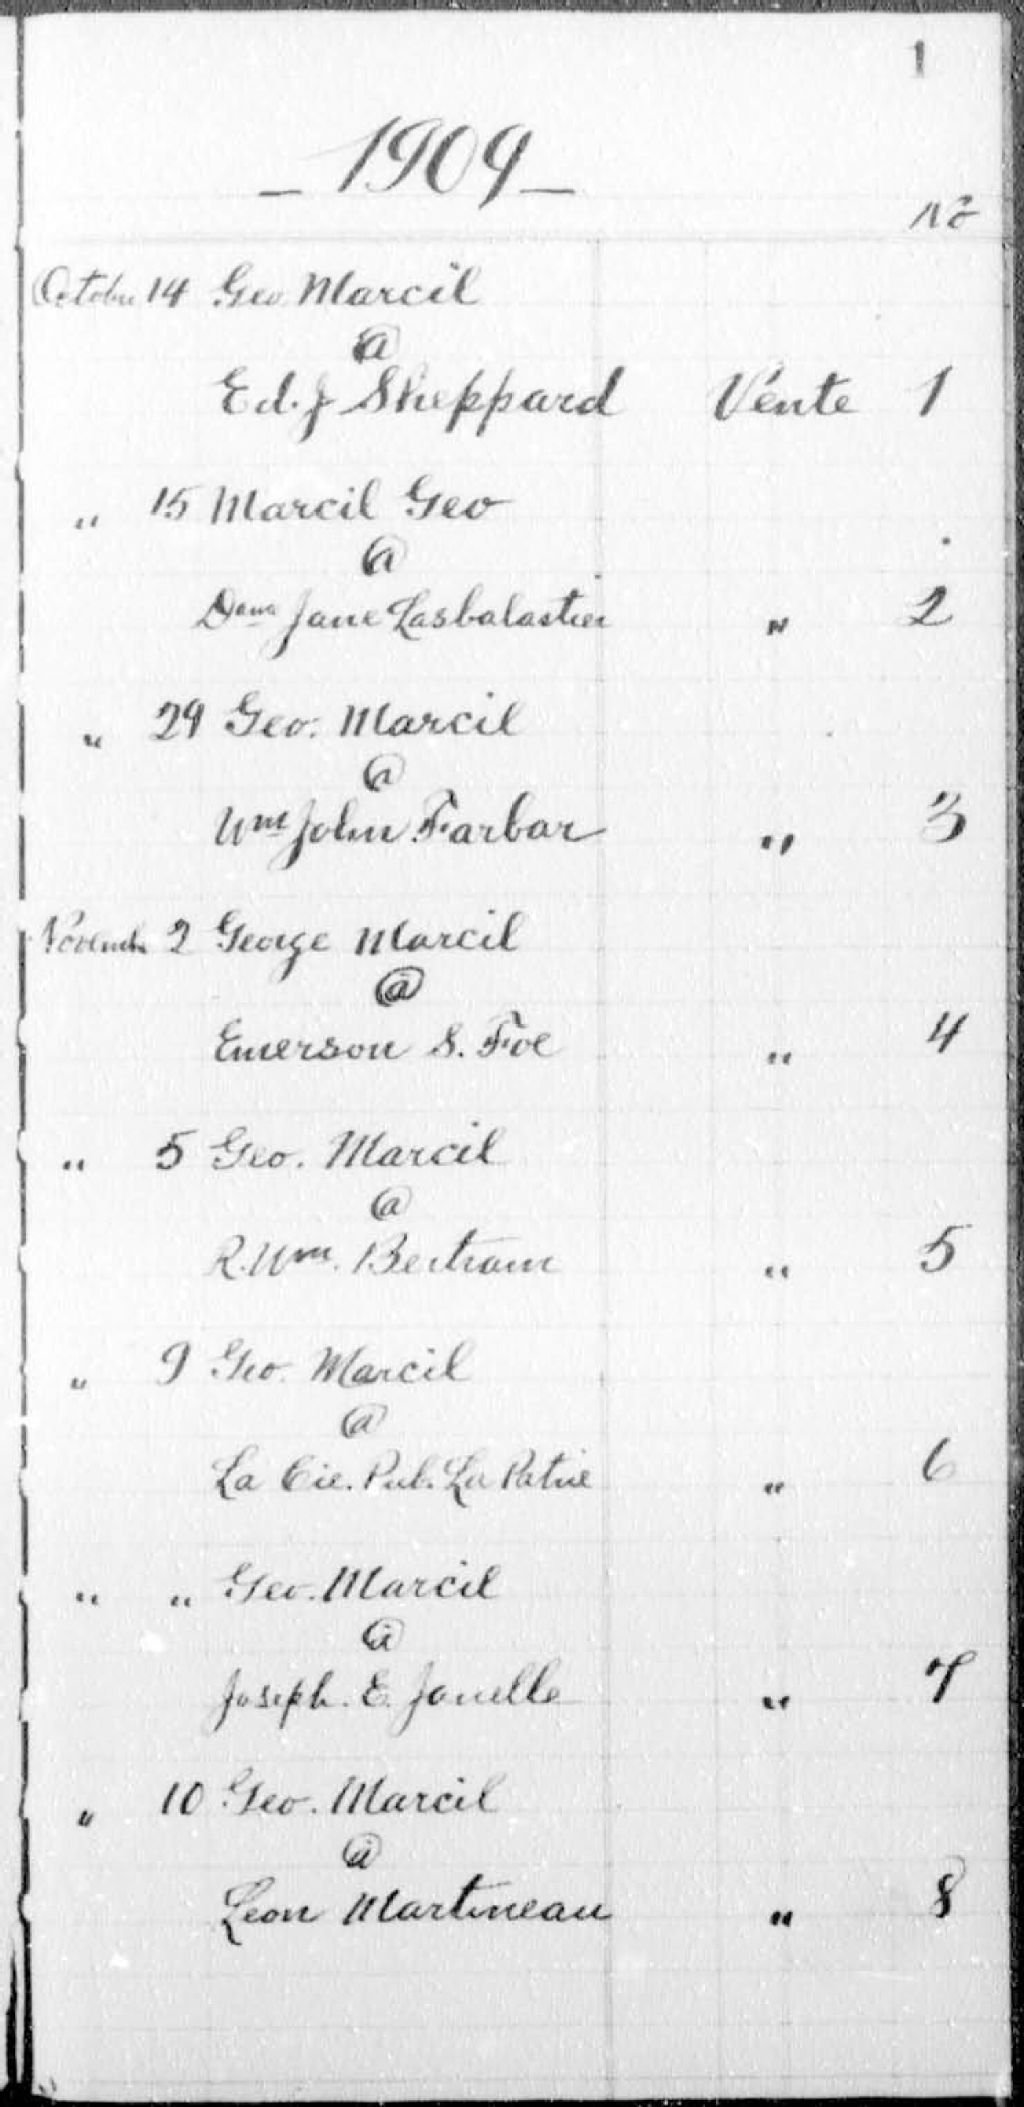 1
_ 1909 _
No
Octobre 14 Geo Marcil
@
Ed. J Sheppard Vente 1
" 15 Marcil Geo
@
Dame Jane Lasbalastier " 2
" 29 Geo. Marcil
@
Wm John Farbar " 3
Novembre 2 George Marcil
@
Emerson S. Foe " 4
" 5 Geo. Marcil
@
R. Wm. Bertram " 5
" 9 Geo. Marcil
@
La Cie. Pub. La Patrie " 6
" " Geo. Marcil
@
Joseph. E. Janelle " 7
" 10 Geo. Marcil
@
Leon Martineau " 8